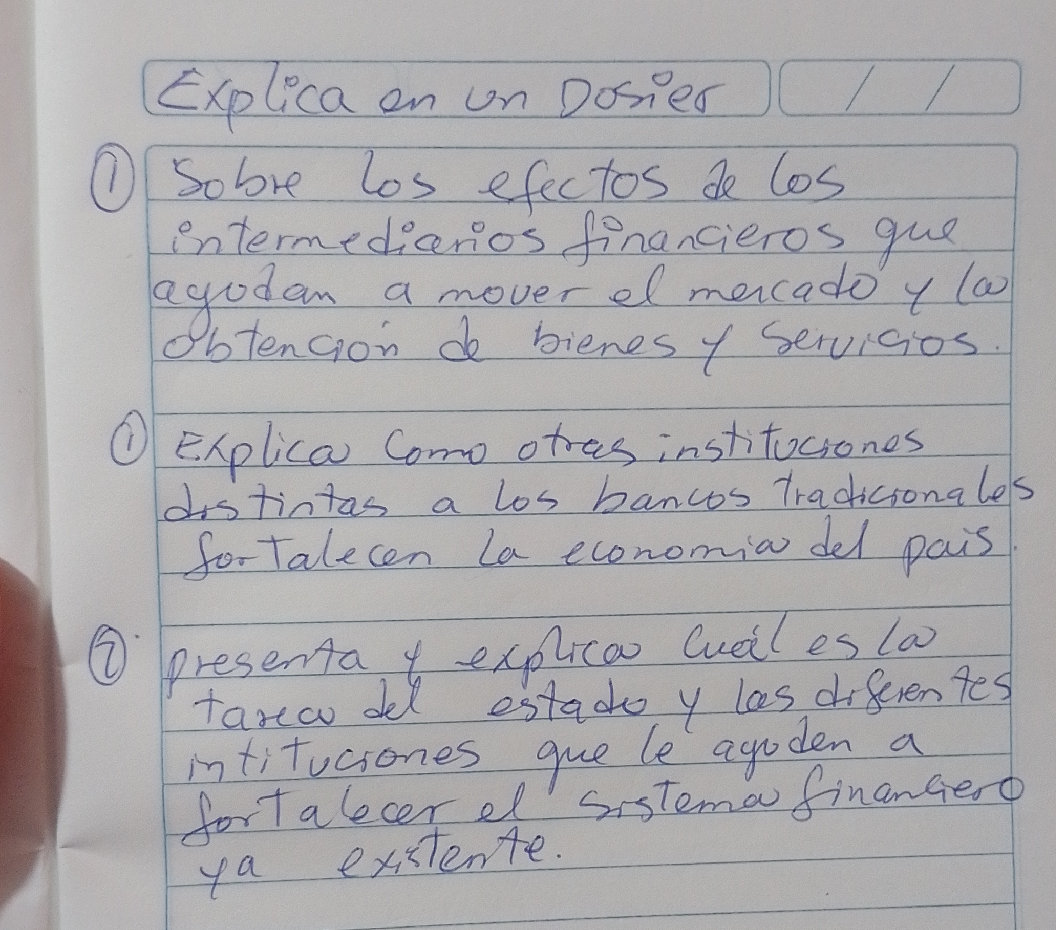 Explica en un Dosier / /
① Sobre los efectos de los
intermediarios financieros que
ayudan a mover el mercado y la
obtención de bienes y servicios.
① Explica como otras instituciones
distintas a los bancos tradicionales
fortalecen la economia del pais.
② presenta y explica cuál es la
tarea del estado y las diferentes
intituciones que le ayuden a
fortalecer el sistema financiero
ya existente.